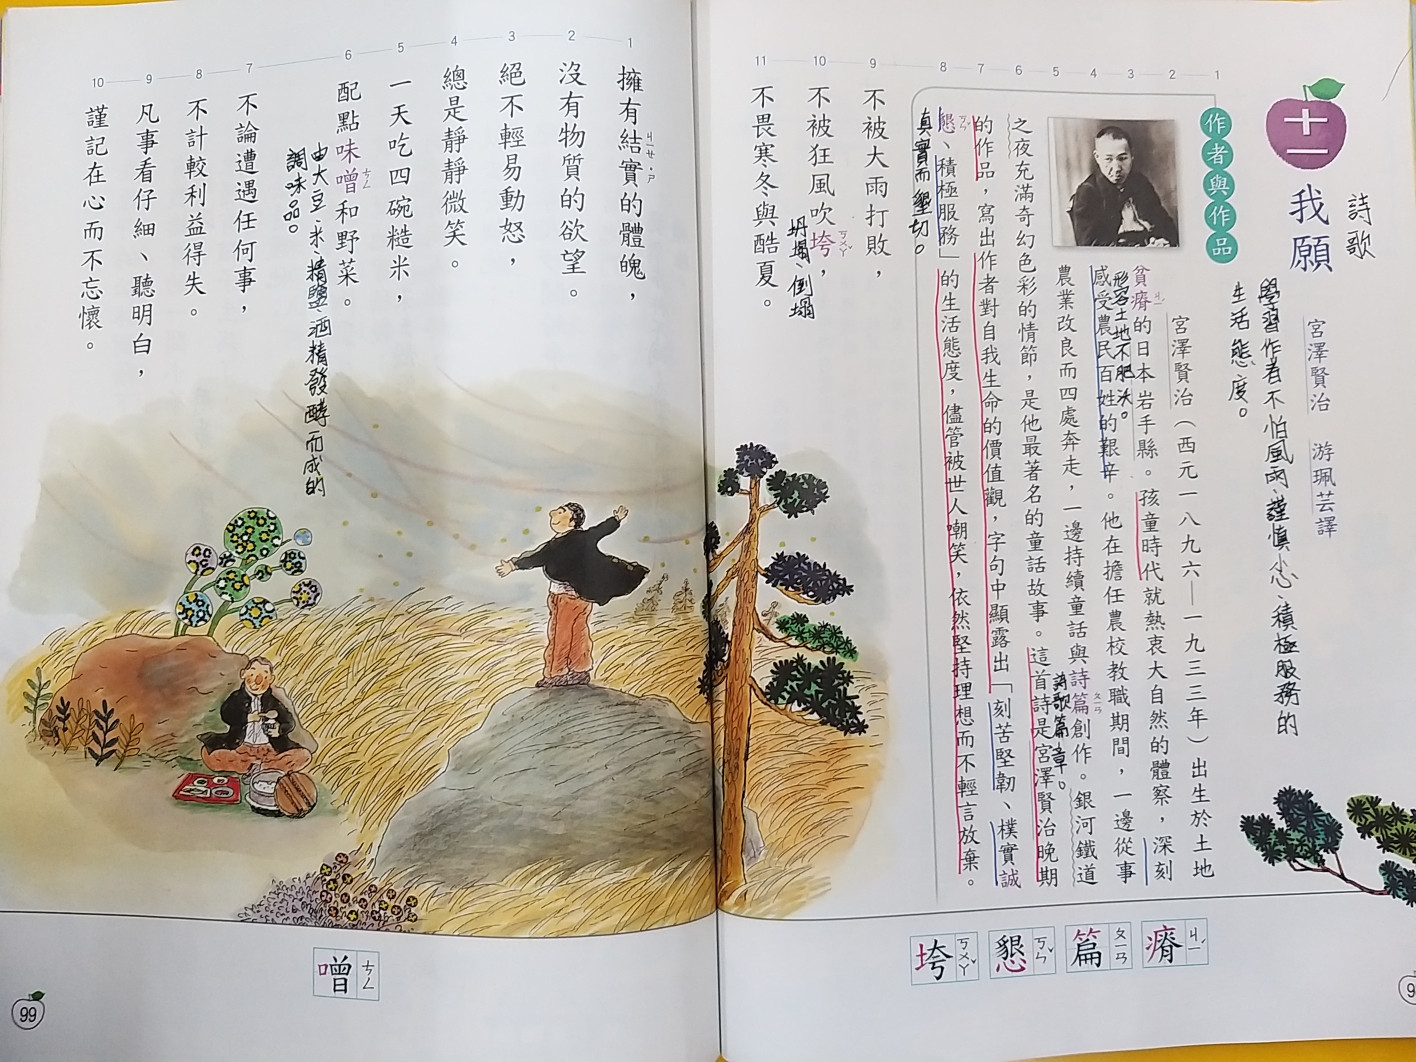 十一
我願
詩歌
宮澤賢治
游珮芸譯
學習作者不怕風雨、謹慎小心、積極服務的
生活態度。
作者與作品
1
2
3
4
5
6
7
8
9
10
11
宮澤賢治（西元一八九六—一九三三年）出生於土地
貧瘠的日本岩手縣。孩童時代就熱衷大自然的體察，深刻
ㄐㄧˊ
形容土地不肥沃。
感受農民百姓的艱辛。他在擔任農校教職期間，一邊從事
農業改良而四處奔走，一邊持續童話與詩篇創作。銀河鐵道
ㄆㄧㄢ
詩歌篇章。
之夜充滿奇幻色彩的情節，是他最著名的童話故事。這首詩是宮澤賢治晚期
的作品，寫出作者對自我生命的價值觀，字句中顯露出「刻苦堅韌、樸實誠
懇、積極服務」的生活態度，儘管被世人嘲笑，依然堅持理想而不輕言放棄。
ㄎㄣˇ
真實而懇切。
不被大雨打敗，
不被狂風吹垮，
ㄎㄨㄚˇ
坍塌、倒塌
不畏寒冬與酷夏。
瘠 ㄐㄧˊ
篇 ㄆㄧㄢ
懇 ㄎㄣˇ
垮 ㄎㄨㄚˇ
1
2
3
4
5
6
7
8
9
10
擁有結實的體魄，
ㄐㄧㄝ ˙ㄕ
沒有物質的欲望。
絕不輕易動怒，
總是靜靜微笑。
一天吃四碗糙米，
配點味噌和野菜。
ㄘㄥ
由大豆、米、精鹽、酒精發酵而成的
調味品。
不論遭遇任何事，
不計較利益得失。
凡事看仔細、聽明白，
謹記在心而不忘懷。
噌 ㄘㄥ
99